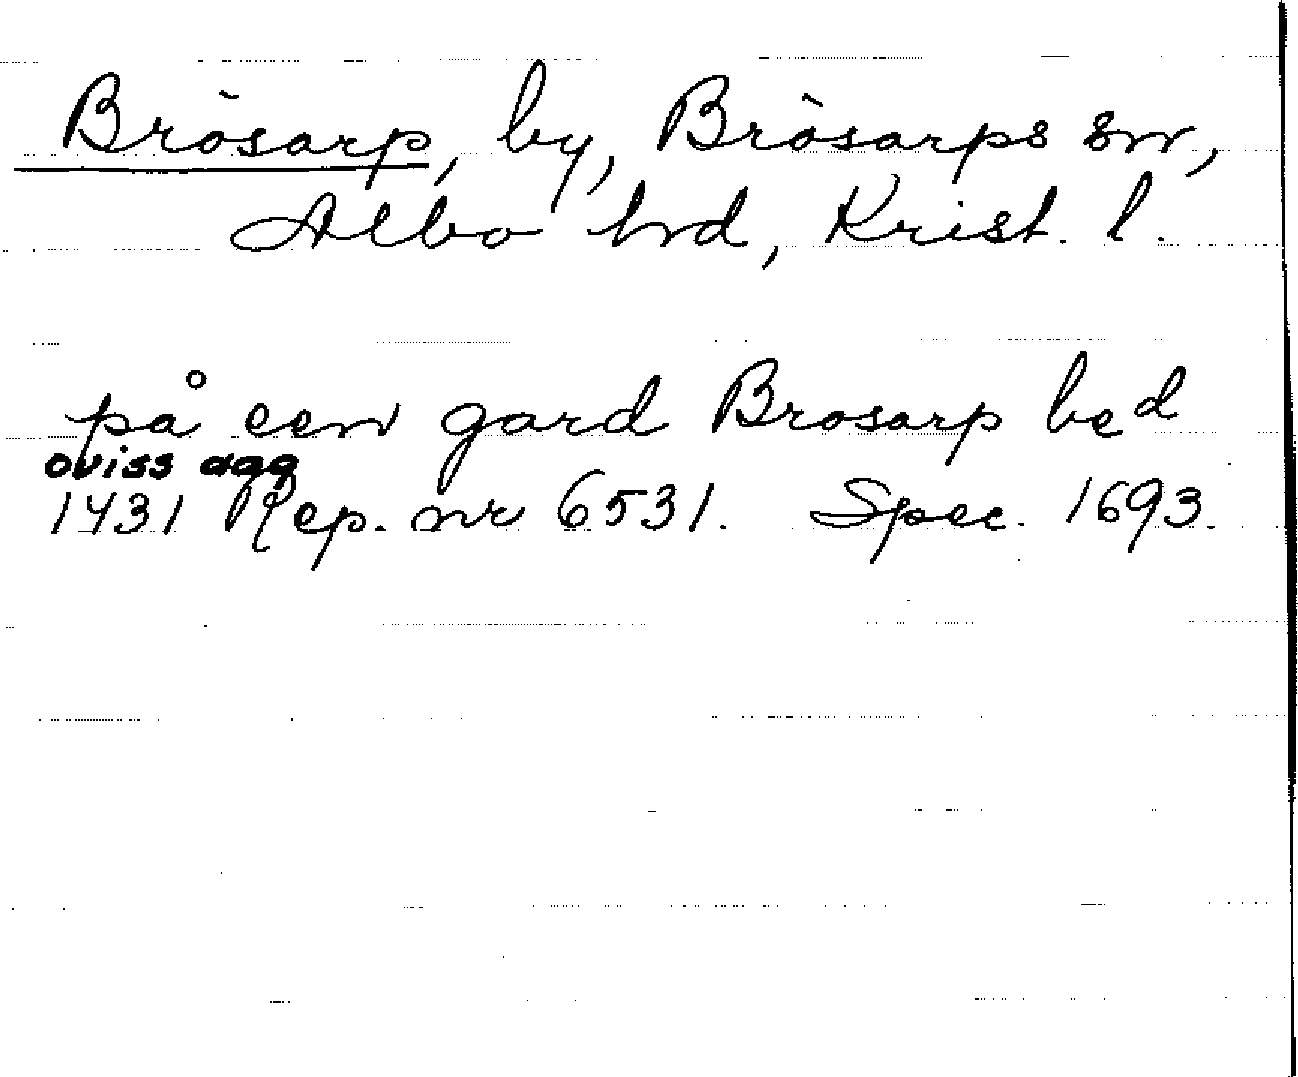 Brösarp, by, Brösarps sn,
Albo hrd, Krist. l.
på een gard Brosarp bed
oviss agg
1431 Rep. nr 6531. Spec. 1693.